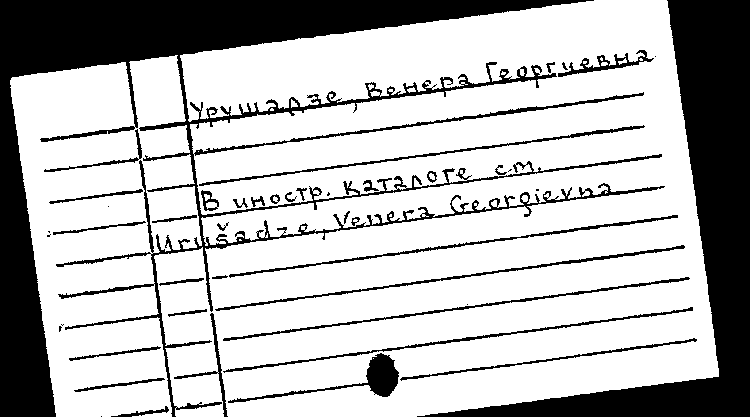 Урушадзе, Венера Георгиевна
В иностр. каталоге см.
Urušadze, Venera Georgievna